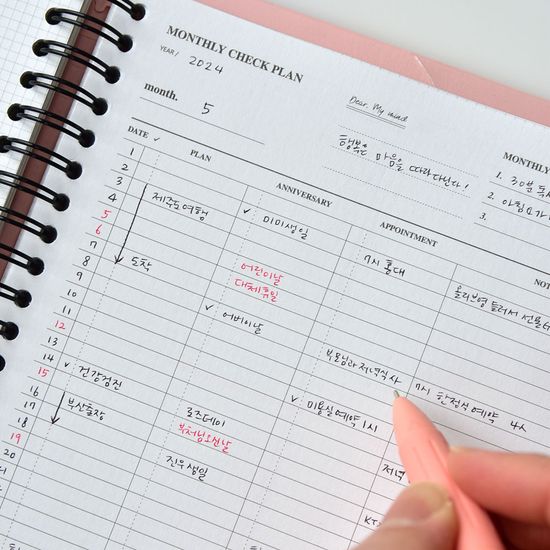 MONTHLY CHECK PLAN
YEAR / 2024
month. 5
Dear. My mind
행복은 마음을 따라다닌다!
MONTHLY
1. 30분 독
2. 아침 요가
3.
DATE ✓ PLAN ANNIVERSARY APPOINTMENT NOT
1
2
3 제주도여행 ✓ 미미생일
4 7시 홍대
5 어린이날
6 대체휴일
7 도착 올리브영 들러서 선물
8 ✓ 어버이날
9
10 부모님과 저녁식사 7시 한정식 예약 4人
11
12 ✓ 미용실예약 1시
13
14 ✓ 건강검진 로즈데이
15 부처님오신날 저녁
16 부산출장 진우생일
17
18 KT
19
20